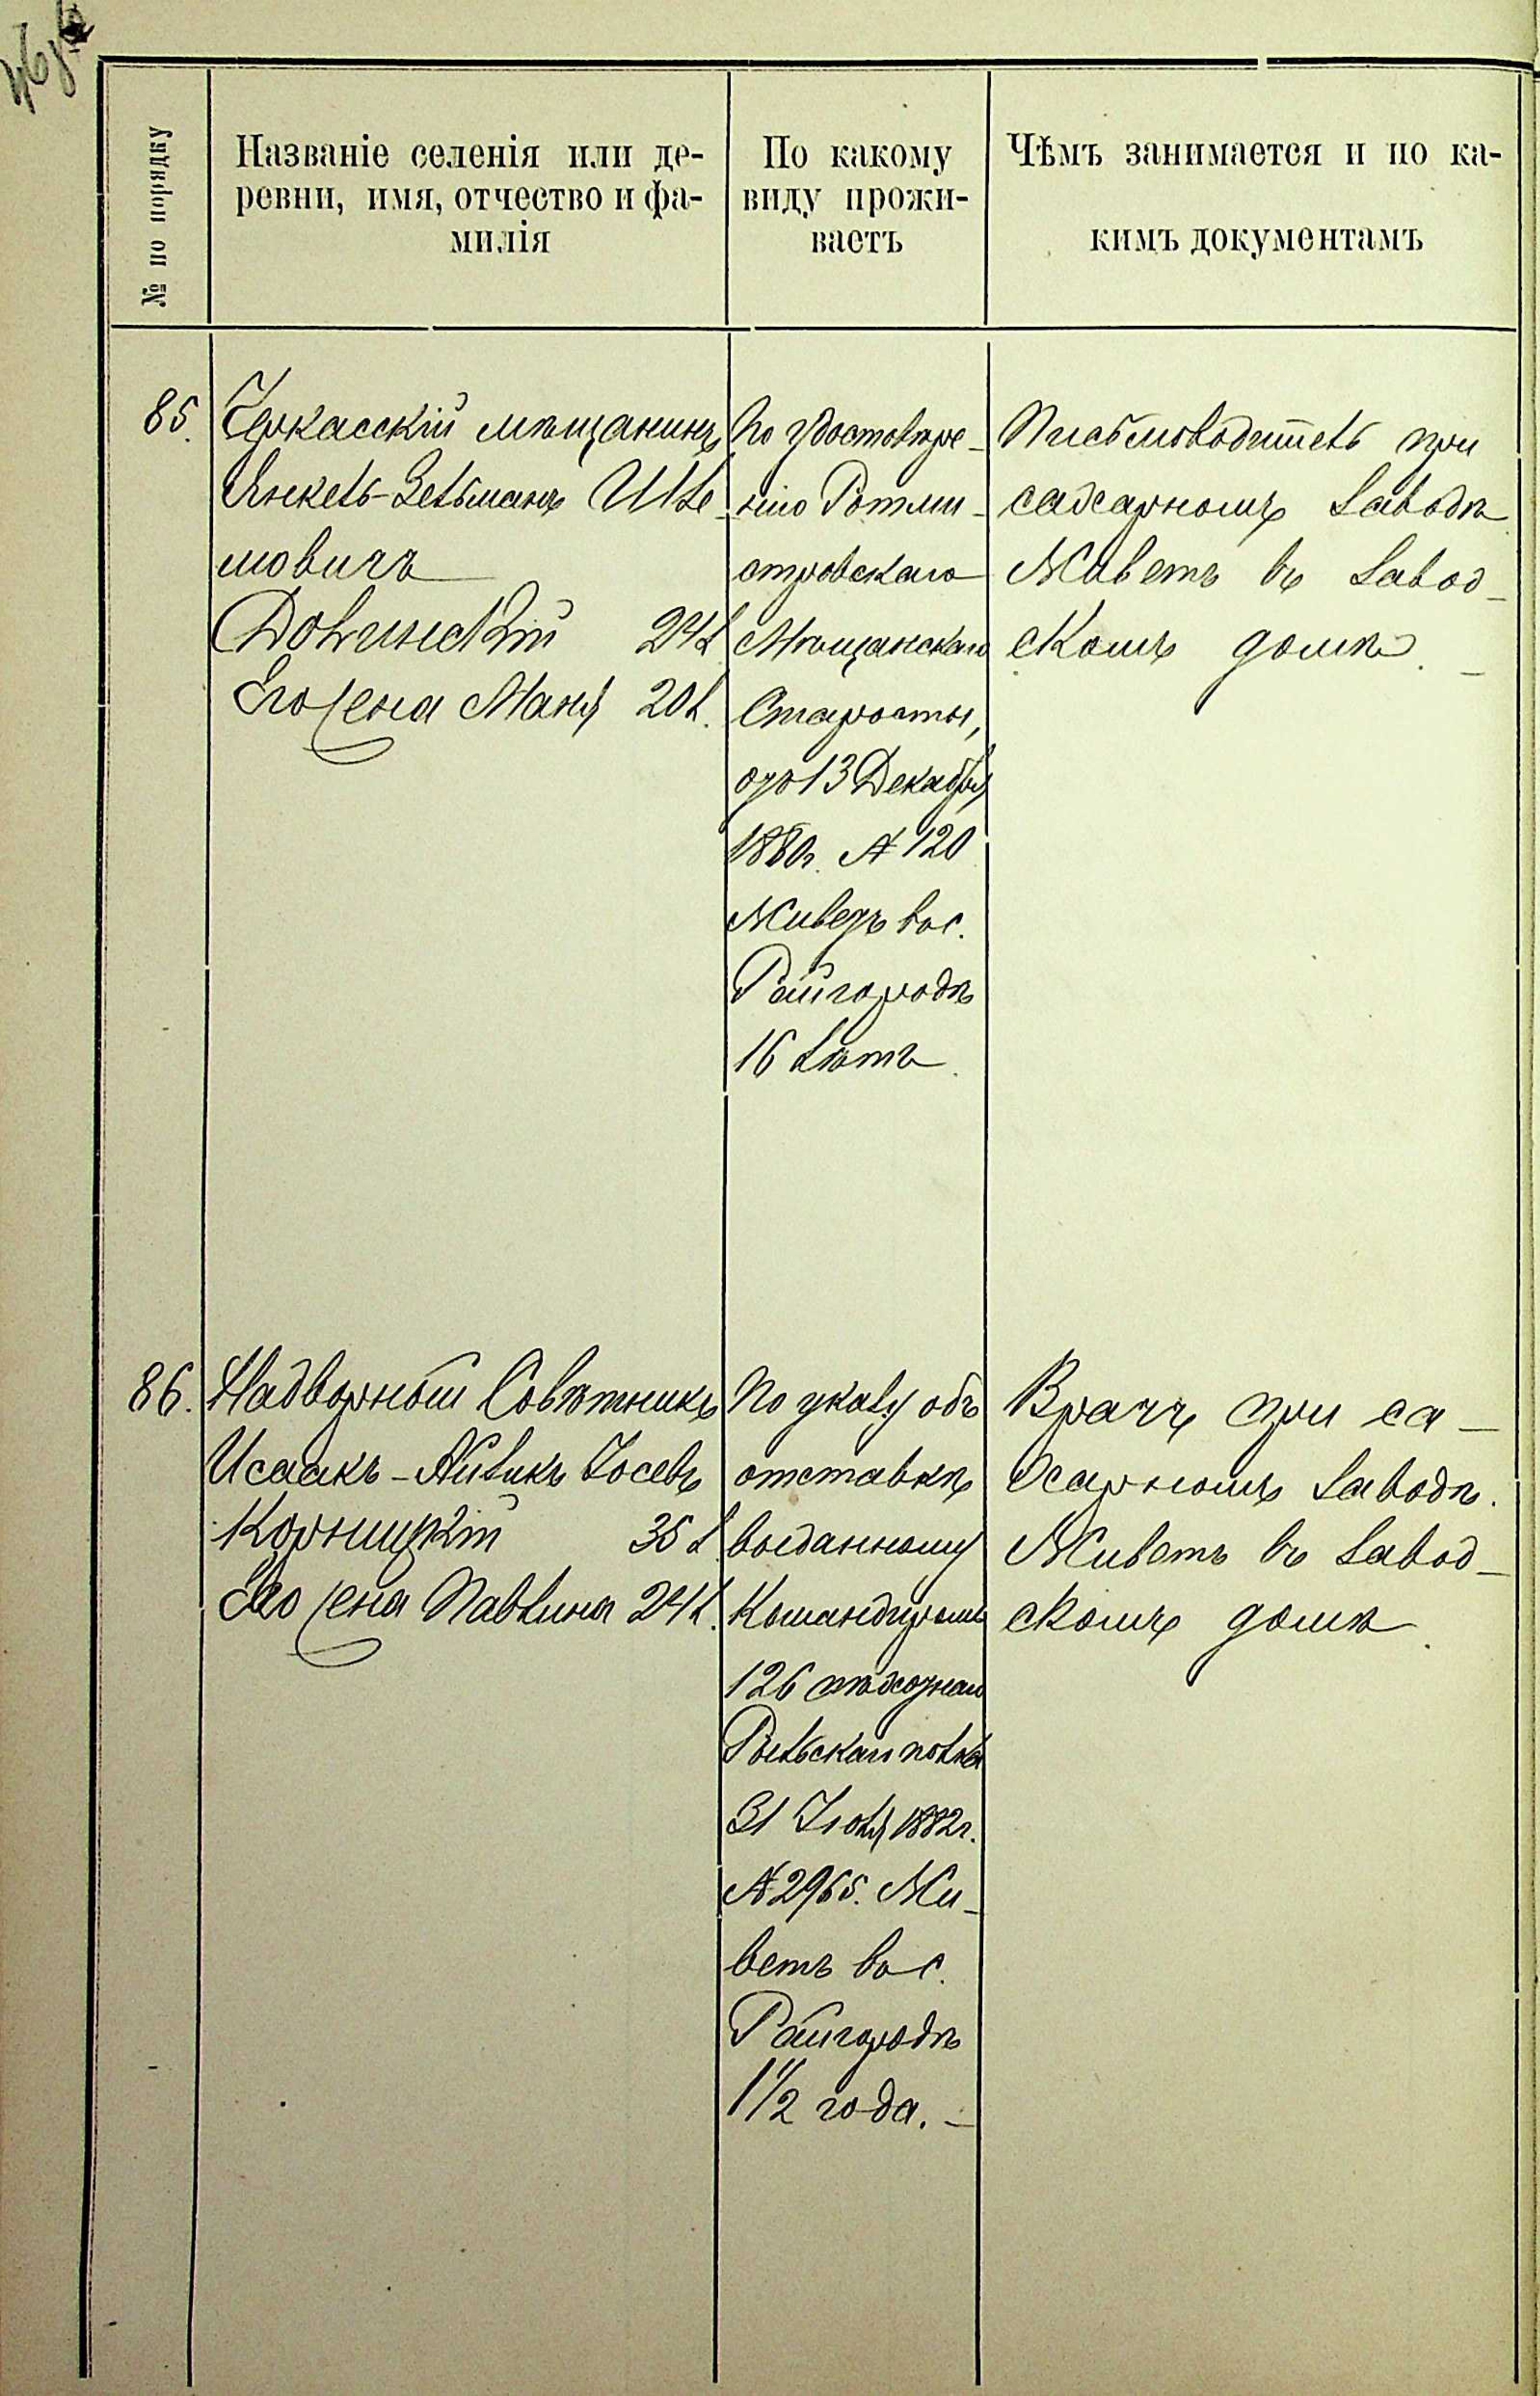 № по порядку
Названіе селенія или де-
ревни, имя, отчество и фа-
милія
По какому
виду прожи-
ваетъ
Чѣмъ занимается и по ка-
кимъ документамъ
85.
Черкасскій мѣщанинъ
Янкель-Зельманъ Шле-
мовичъ
Долинскій 24 л.
Его жена Маня 20 л.
По удостовѣре-
нію Ротми-
стровскаго
Мѣщанскаго
Старосты,
отъ 13 Декабря
1880г. № 120
Живетъ въ с.
Райгородѣ
16 лѣтъ.
Письмоводитель при
сахарномъ заводѣ
Живетъ въ завод-
скомъ домѣ. -
86.
Надворный Совѣтникъ
Исаакъ-Айзикъ Іосевъ
Корницкій 35 л.
Его жена Павлина 24 л.
По указу объ
отставкѣ
выданному
Командиромъ
126 пѣхотнаго
Рыльскаго полка
31 Іюля 1882г.
№ 2965. Жи-
ветъ въ с.
Райгородѣ
1 1/2 года. -
Врачъ при са-
харномъ заводѣ.
Живетъ въ завод-
скомъ домѣ.